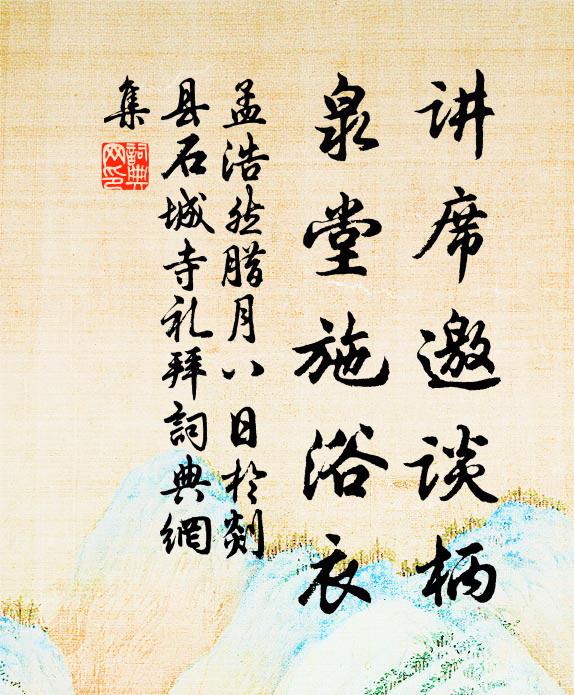 讲席邀谈柄
泉堂施浴衣
孟浩然腊月八日於剡
县石城寺礼拜詞典網
集
詞典
网印